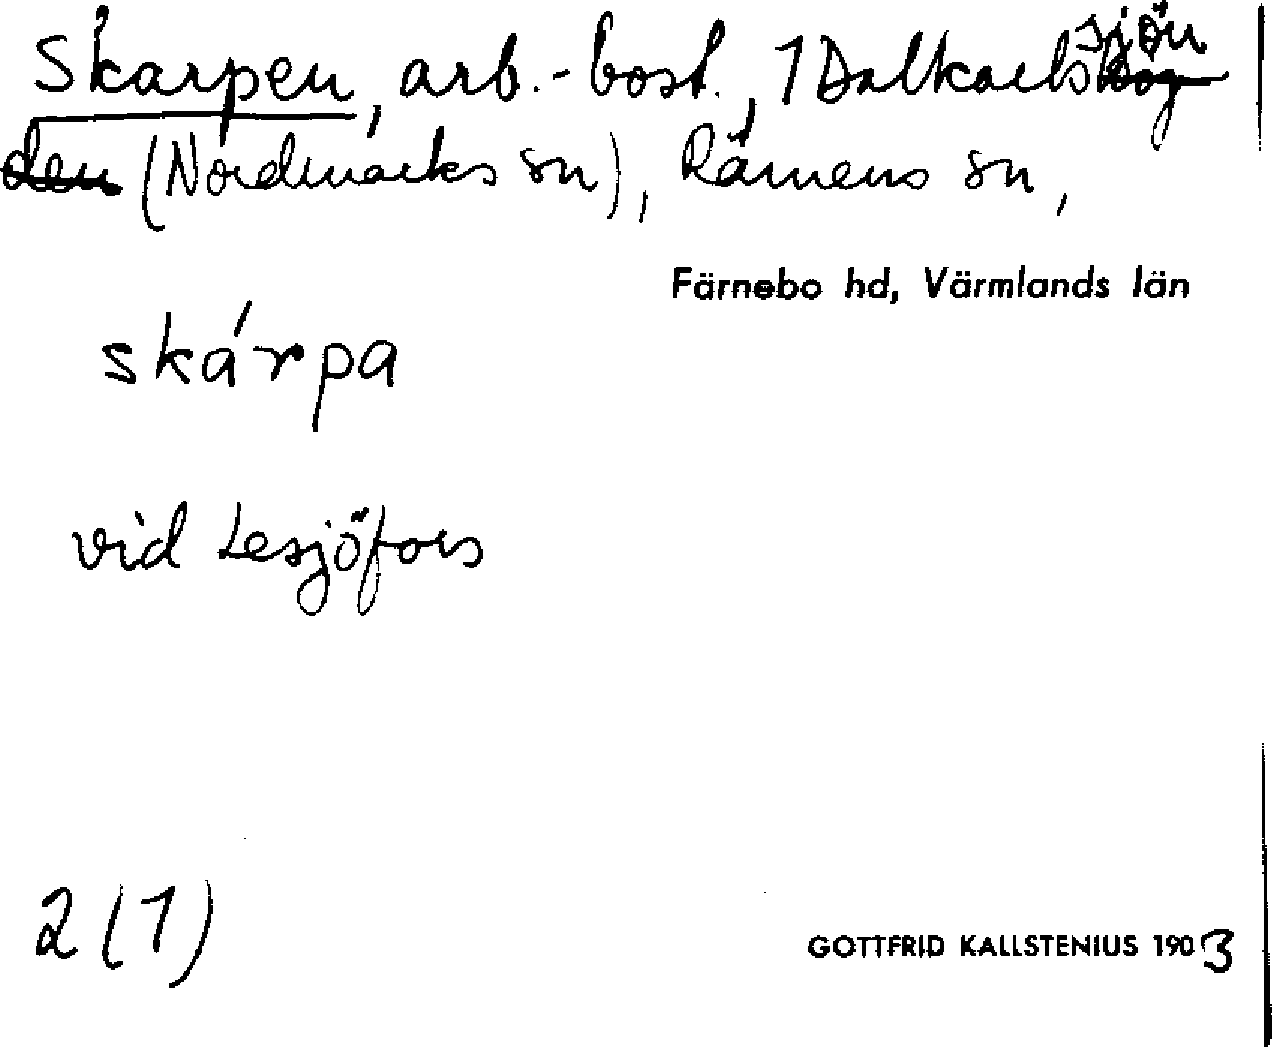 Skarpen, arb.-bost., 1 Dalkarlssjön
(Nordmarks sn), Rämens sn,
Färnebo hd, Värmlands län
skárpa
vid Lesjöfors
2(1)
GOTTFRID KALLSTENIUS 1903